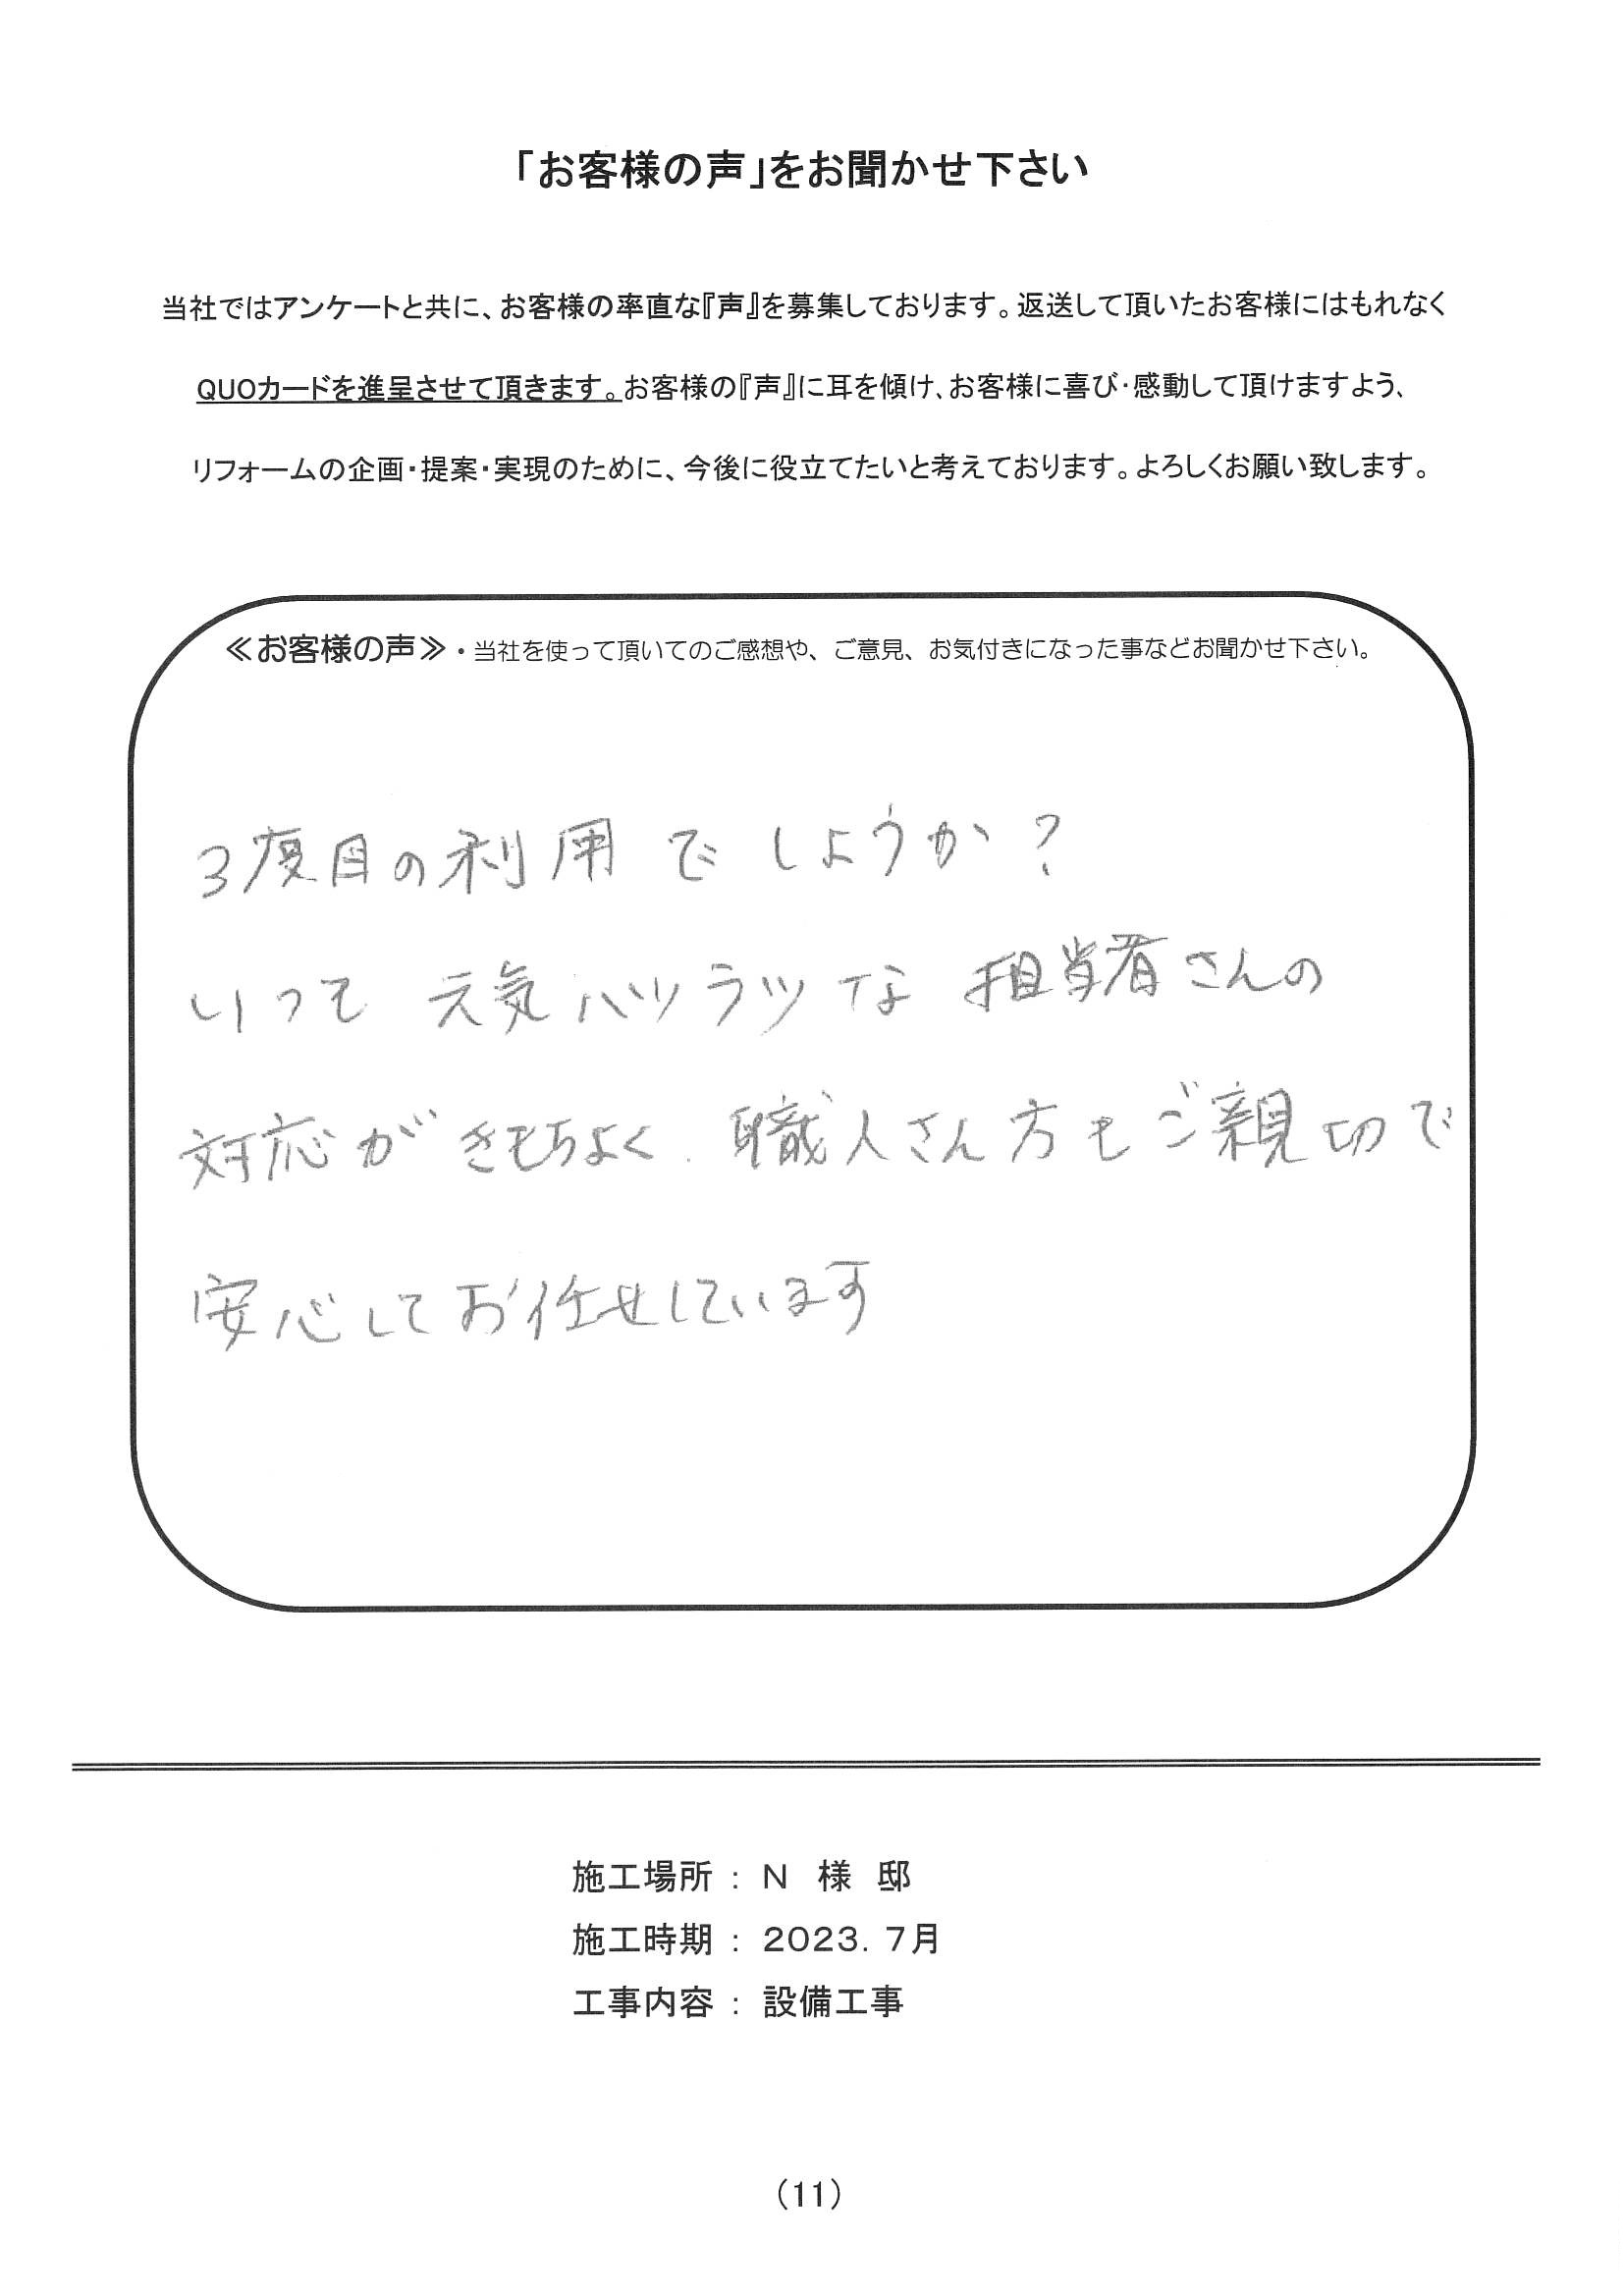 「お客様の声」をお聞かせ下さい
当社ではアンケートと共に、お客様の率直な『声』を募集しております。返送して頂いたお客様にはもれなく
QUOカードを進呈させて頂きます。お客様の『声』に耳を傾け、お客様に喜び・感動して頂けますよう、
リフォームの企画・提案・実現のために、今後に役立てたいと考えております。よろしくお願い致します。
≪お客様の声≫・当社を使って頂いてのご感想や、ご意見、お気付きになった事などお聞かせ下さい。
3度目の利用でしょうか？
いつも元気ハツラツな担当者さんの
対応がきもちよく、職人さん方もご親切で
安心してお任せしています
施工場所 : N 様 邸
施工時期 : 2023. 7月
工事内容 : 設備工事
(11)